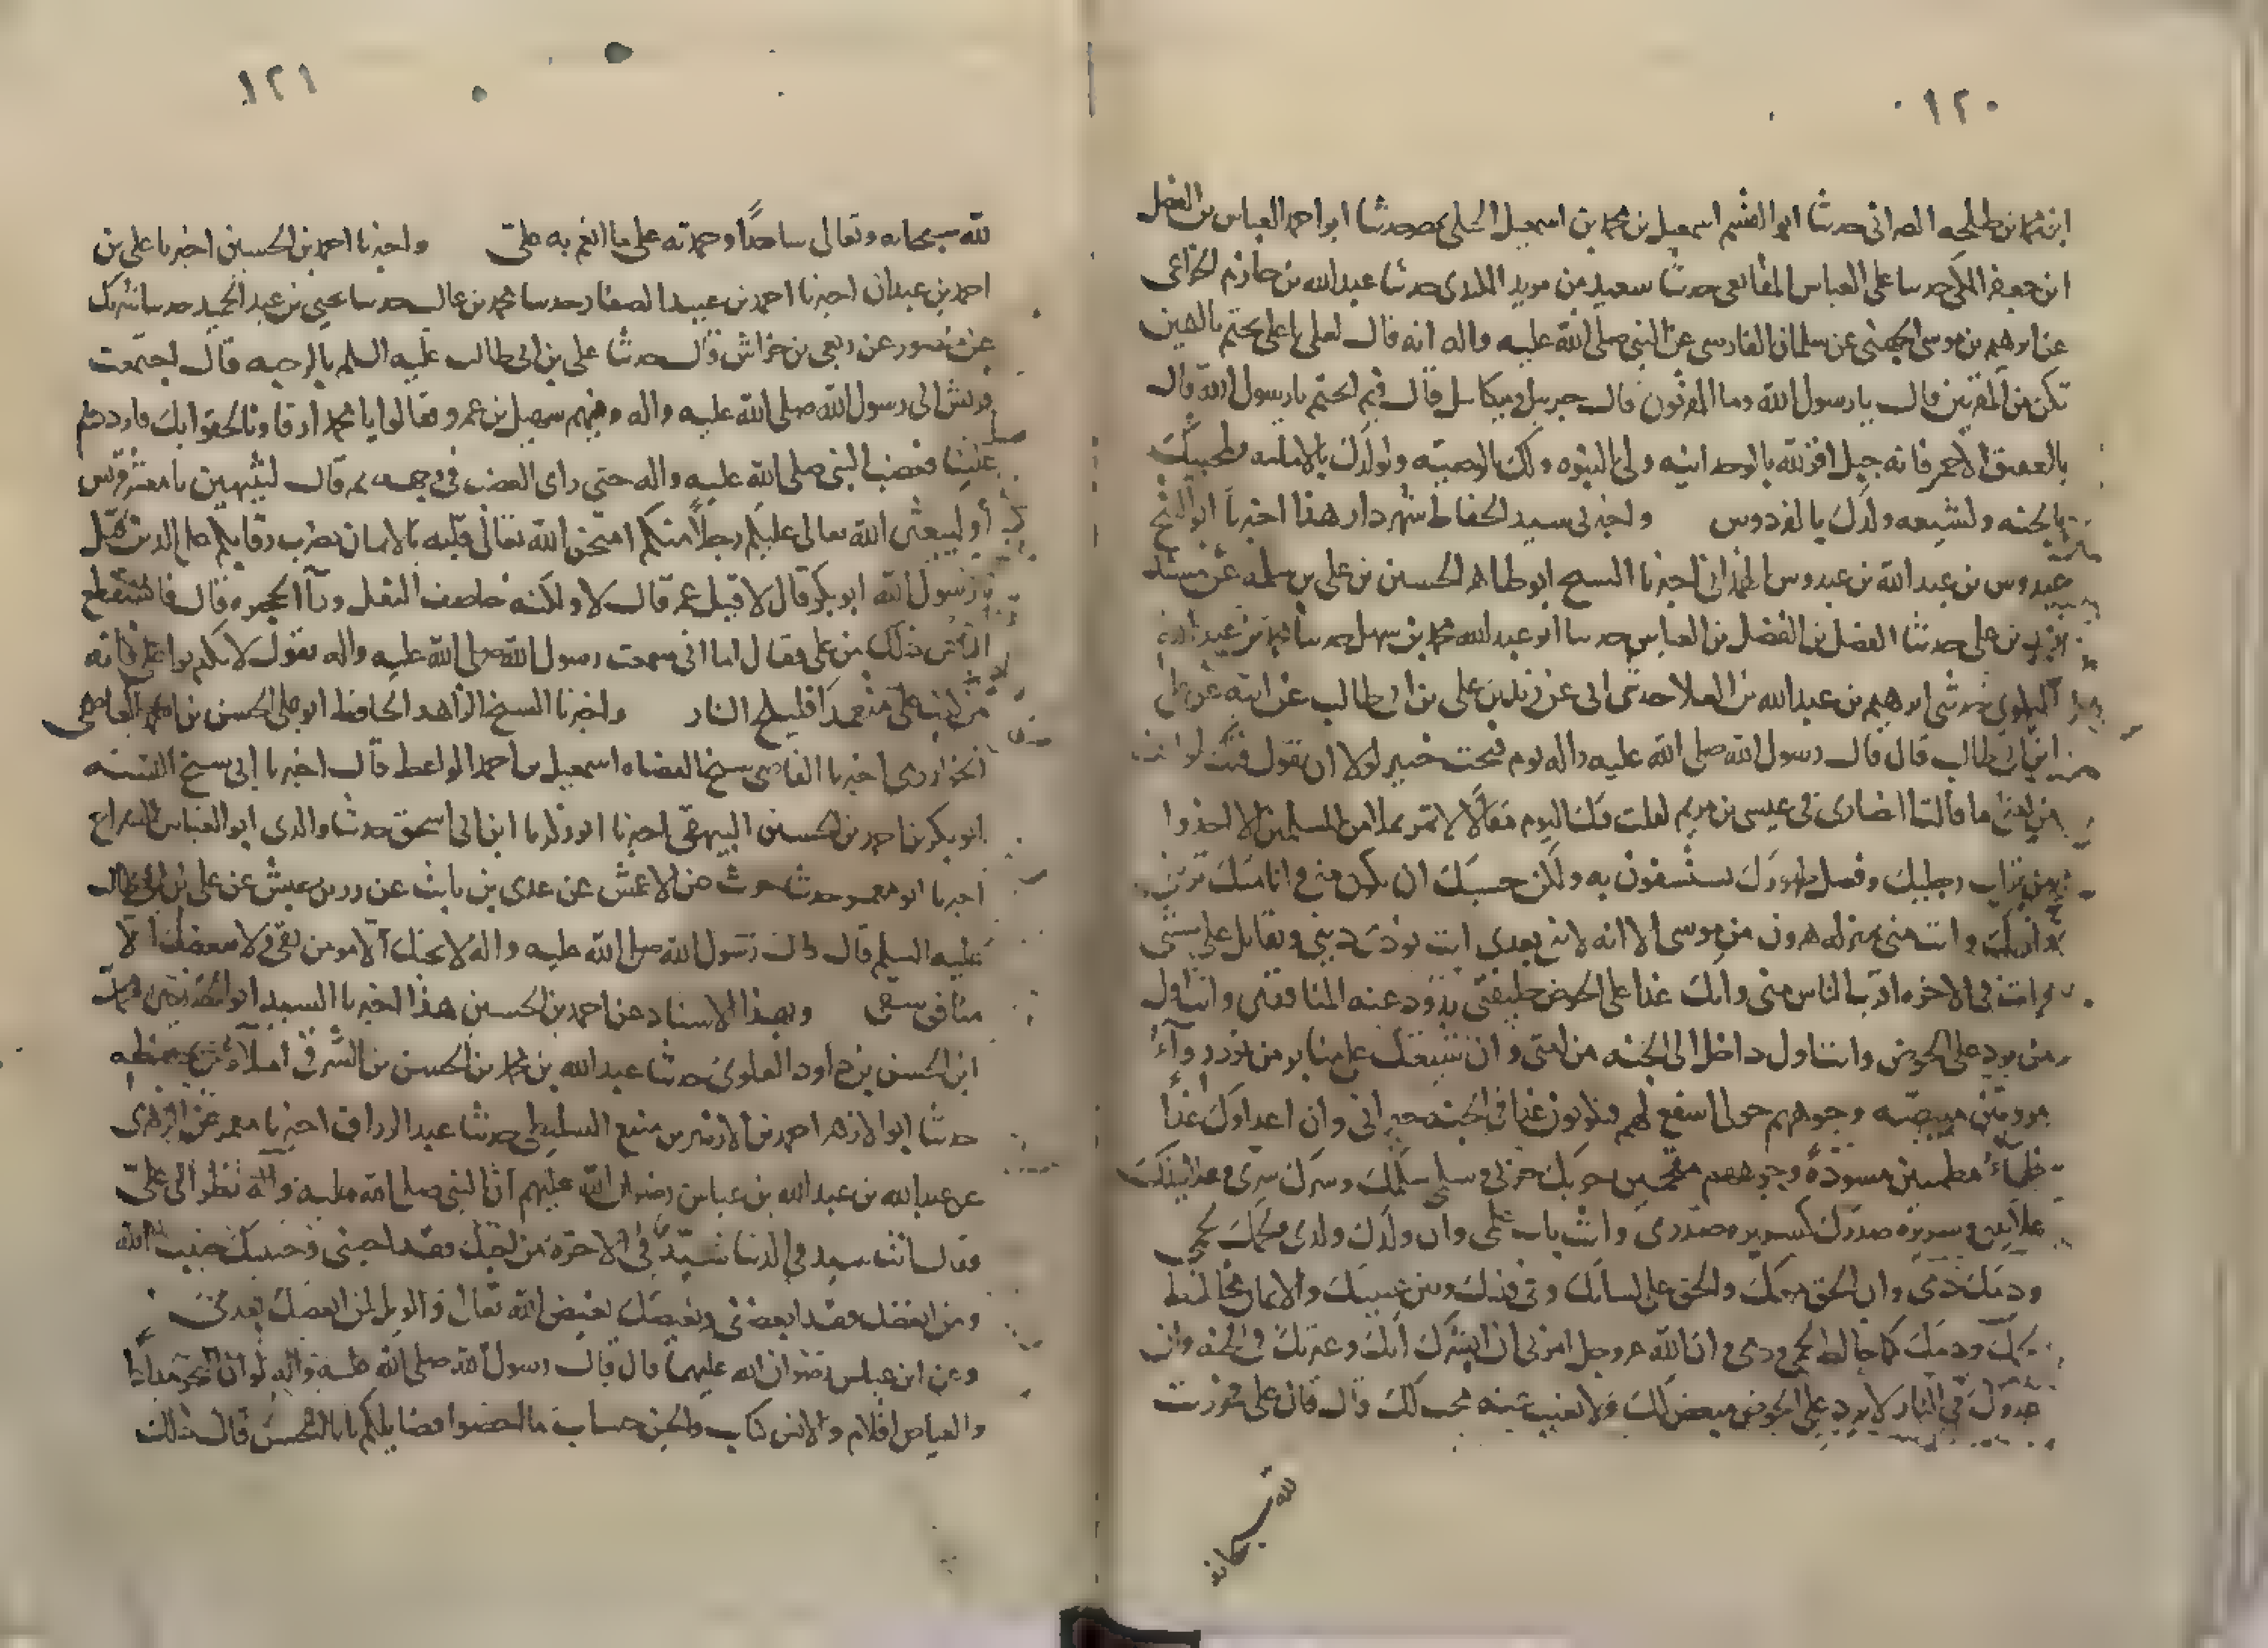 ١٢٠
ابن محمد بن طلحه حدثنا ابو القسم اسمعيل بن محمد بن اسمعيل الحلبي حدثنا ابو احمد العباس بن الفضل
ابن جعفر المكي حدثنا علي العباس المقانعي حدثنا سعيد بن الكندي حدثنا عبد الله بن حازم الخزاعي
عن ابرهيم بن موسى الجهني عن سلمان الفارسي عن النبي صلى الله عليه واله انه قال لعلي يا علي تختم باليمين
تكن من المقربين قال يا رسول الله وما المقربون قال جبريل وميكايل قال فبم اتختم يا رسول الله قال
بالعقيق الاحمر فانه جبل اقر لله بالوحدانيه ولي بالنبوه ولك بالوصيه ولولدك بالامامه ولمحبيك
بالجنه ولشيعه ولدك بالفردوس واخبرني سيد الحفاظ شهردار هذا اخبرنا ابو الفتح
عبدوس بن عبد الله بن عبدوس الهمداني اخبرنا الشيخ ابو طاهر الحسين بن علي بن سلمه عن مسند
زيد بن علي حدثنا الفضل بن الفضل بن العباس حدثنا ابو عبد الله محمد بن سهل حدثنا محمد بن عبد الله
البلوي حدثني ابرهيم بن عبيد الله بن العلا حدثني ابي عن زيد بن علي بن ابي طالب عن ابيه عن علي
ابن ابي طالب قال قال رسول الله صلى الله عليه واله يوم فتحت خيبر لولا ان تقول فيك طوائف
من امتي ما قالت النصارى في عيسى بن مريم لقلت فيك اليوم مقالا لا تمر بملا من المسلمين الا اخذوا
من تراب رجليك وفضل طهورك يستشفون به ولكن حسبك ان تكون مني وانا منك ترثني
وارثك وانت مني بمنزله هرون من موسى الا انه لا نبي بعدي انت تؤدي ديني وتقاتل على سنتي
وانت في الاخره اقرب الناس مني وانك غدا على الحوض خليفتي تذود عنه المنافقين وانت اول
من يرد على الحوض وانت اول داخل الى الجنه من امتي وان شيعتك على منابر من نور رواء
مرويين مبيضه وجوههم حولي اشفع لهم فيكونون غدا في الجنه جيراني وان اعداءك غدا
ظماء مظمئين مسودة وجوههم مقمحين حربك حربي وسلمك سلمي وسرك سري وعلانيتك
علانيتي وسريره صدرك كسريره صدري وانت باب علمي وان ولدك ولدي ولحمك لحمي
ودمك دمي وان الحق معك والحق على لسانك وفي قلبك وبين عينيك والايمان مخالط
لحمك ودمك كما خالط لحمي ودمي وان الله عز وجل امرني ان ابشرك انك وعترتك في الجنه وان
عدوك في النار لا يرد على الحوض مبغض لك ولا يغيب عنه محب لك قال قال علي فخررت
لله سبحانه
١٢١
لله سبحانه وتعالى ساجدا وحمدته على ما انعم به علي واخبرنا احمد بن الحسين اخبرنا علي بن
احمد بن عبدان اخبرنا احمد بن عبيد الصفار حدثنا محمد بن غالب حدثنا يحيى بن عبد الحميد حدثنا شريك
عن منصور عن ربعي بن خراش قال حدثنا علي بن ابي طالب عليه السلم بالرحبه قال اجتمعت
قريش الى رسول الله صلى الله عليه واله وفيهم سهيل بن عمرو فقالوا يا محمد ارقاونا لحقوا بك فارددهم
علينا فغضب النبي صلى الله عليه واله حتى راى الغضب في وجهه ثم قال لتنتهين يا معشر قريش
او ليبعثن الله تعالى عليكم رجلا منكم امتحن الله تعالى قلبه بالايمان يضرب رقابكم على الدين قيل
يا رسول الله ابو بكر قال لا قيل عمر قال لا ولكنه خاصف النعل في الحجره قال فاستقطع
الناس ذلك من علي فقال اما اني سمعت رسول الله صلى الله عليه واله يقول لا تكذبوا علي فانه
من كذب علي متعمدا فليلج النار واخبرنا الشيخ الزاهد الحافظ ابو الحسن علي بن احمد العاصمي
الخوارزمي اخبرنا القاضي شيخ القضاه اسمعيل بن احمد الواعظ قال اخبرنا ابي شيخ السنه
ابو بكر احمد بن الحسين البيهقي اخبرنا ابو زكريا ابن ابي اسحق حدثنا والدي ابو العباس السراج
اخبرنا ابو معمر حدثنا عن الاعمش عن عدي بن ثابت عن زر بن حبيش عن علي بن ابي طالب
عليه السلم قال قال رسول الله صلى الله عليه واله لا يحبك الا مومن تقي ولا يبغضك الا
منافق شقي وبهذا الاسناد عن احمد بن الحسين هذا اخبرنا السيد ابو الحسن محمد
ابن الحسين بن داود العلوي حدثنا عبد الله بن محمد بن الحسن بن الشرقي املاء من حفظه
حدثنا ابو الازهر احمد بن الازهر بن منيع السليطي حدثنا عبد الرزاق اخبرنا معمر عن الزهري
عن عبيد الله بن عبد الله بن عباس رضوان الله عليهم ان النبي صلى الله عليه واله نظر الى علي
فقال انت سيد في الدنيا سيد في الاخره من احبك فقد احبني وحبيبك حبيب الله
ومن ابغضك فقد ابغضني وبغيضك بغيض الله تعالى والويل لمن ابغضك بعدي
وعن ابن عباس رضوان الله عليهما قال قال رسول الله صلى الله عليه واله لو ان البحر مداد
والغياض اقلام والانس كتاب والجن حساب ما احصوا فضايلكم يا ابا الحسن قال ذلك